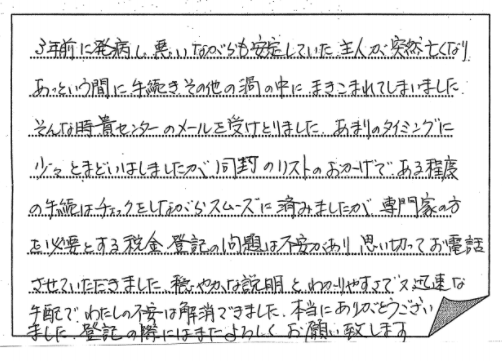 3年前に発病し悪いながらも安定していた主人が突然亡くなり
あっという間に手続きその他の渦の中にまきこまれてしまいました
そんな時貴センターのメールを受けとりました。あまりのタイミングに
少々とまどいはしましたが同封のリストのおかげである程度
の手続はチェックをしながらスムーズに済みましたが、専門家の方
を必要とする税金、登記の問題は不安があり思い切ってお電話
させていただきました。穏やかな説明とわかりやすさで又迅速な
手配でわたしの不安は解消できました。本当にありがとうござい
ました。登記の際にはまたよろしくお願い致します